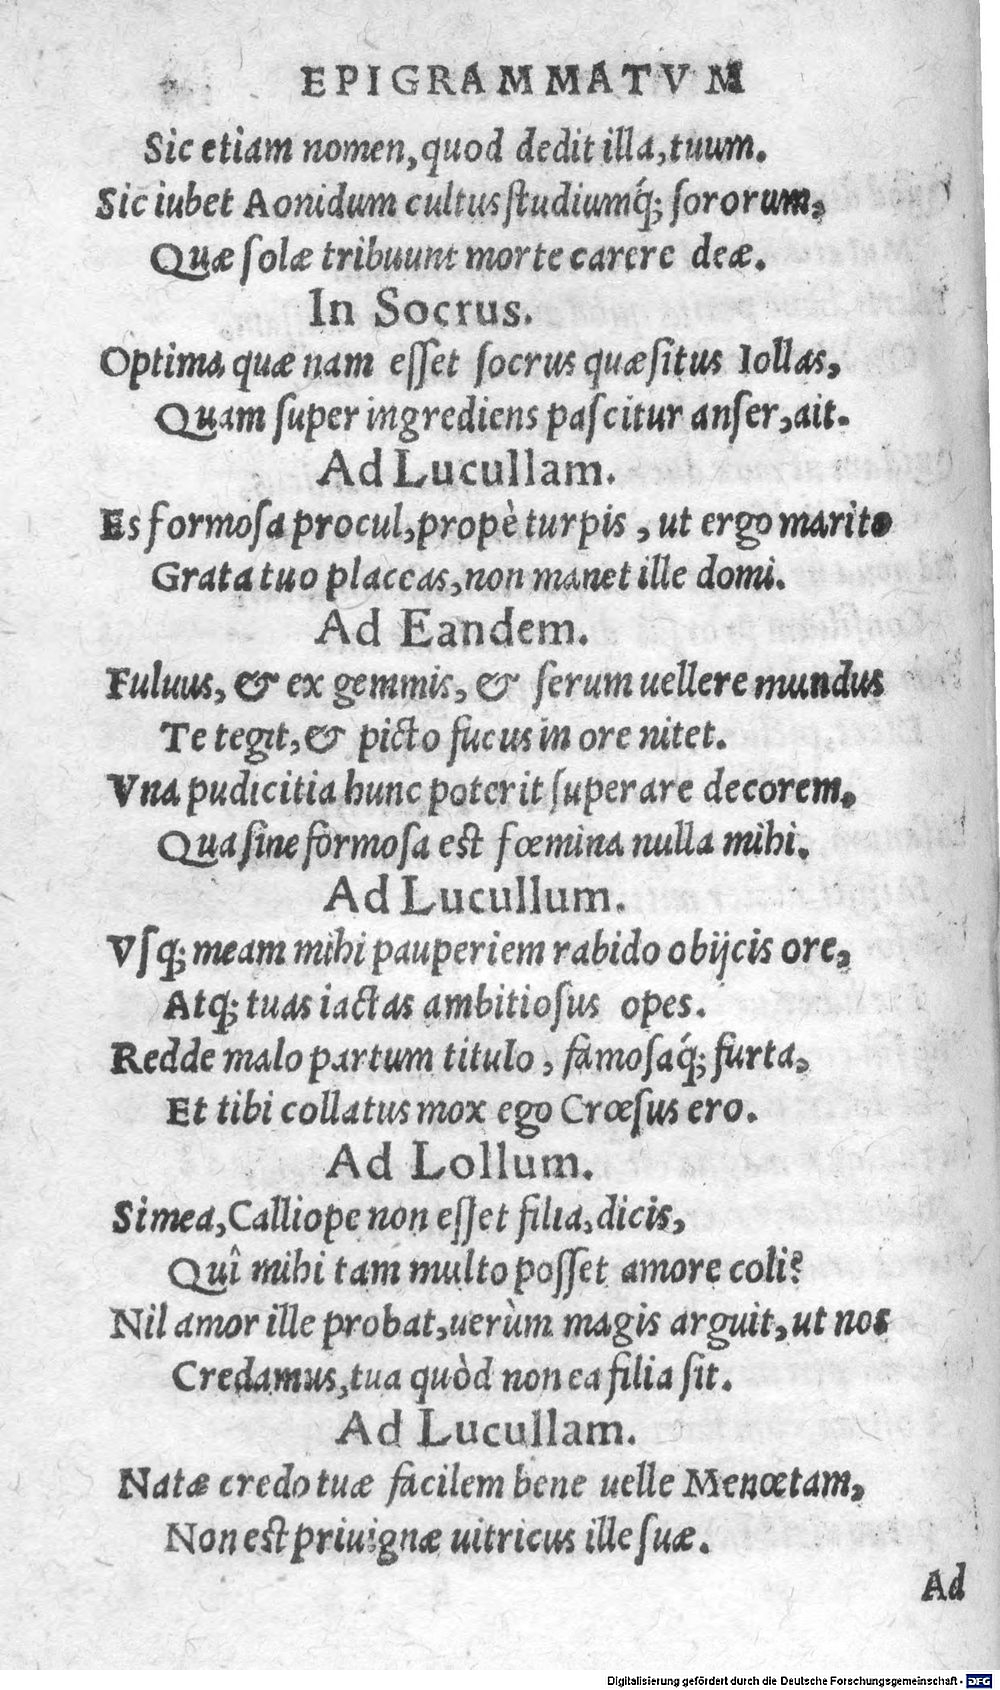 EPIGRAMMATVM
Sic etiam nomen, quod dedit illa, tuum.
Sic iubet Aonidum cultus ſtudiumq́; ſororum,
Quæ ſolæ tribuunt morte carere deæ.
In Socrus.
Optima quæ nam eſſet ſocrus quæſitus Iollas,
Quam ſuper ingrediens paſcitur anſer, ait.
Ad Lucullam.
Es formoſa procul, propè turpis, ut ergo marito
Grata tuo placeas, non manet ille domi.
Ad Eandem.
Fuluus, & ex gemmis, & ſerum uellere mundus
Te tegit, & picto fucus in ore nitet.
Vna pudicitia hunc poterit ſuperare decorem,
Qua ſine formoſa est fœmina nulla mihi.
Ad Lucullum.
Vſq; meam mihi pauperiem rabido obijcis ore,
Atq; tuas iactas ambitioſus opes.
Redde malo partum titulo, famoſaq́; furta,
Et tibi collatus mox ego Crœſus ero.
Ad Lollum.
Si mea, Calliope non eſſet filia, dicis,
Quî mihi tam multo poſſet amore coli?
Nil amor ille probat, uerùm magis arguit, ut nos
Credamus, tua quòd non ea filia ſit.
Ad Lucullam.
Natæ credo tuæ facilem bene uelle Menœtam,
Non est priuignæ uitricus ille ſuæ.
Ad
Digitalisierung gefördert durch die Deutsche Forschungsgemeinschaft - DFG